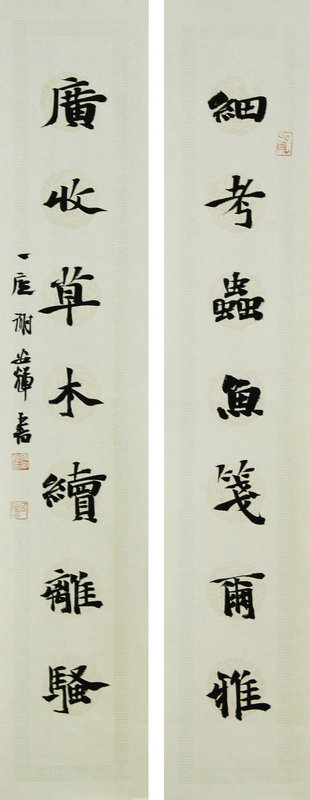 細考蟲魚箋爾雅
廣收草木續離騷
謝
書